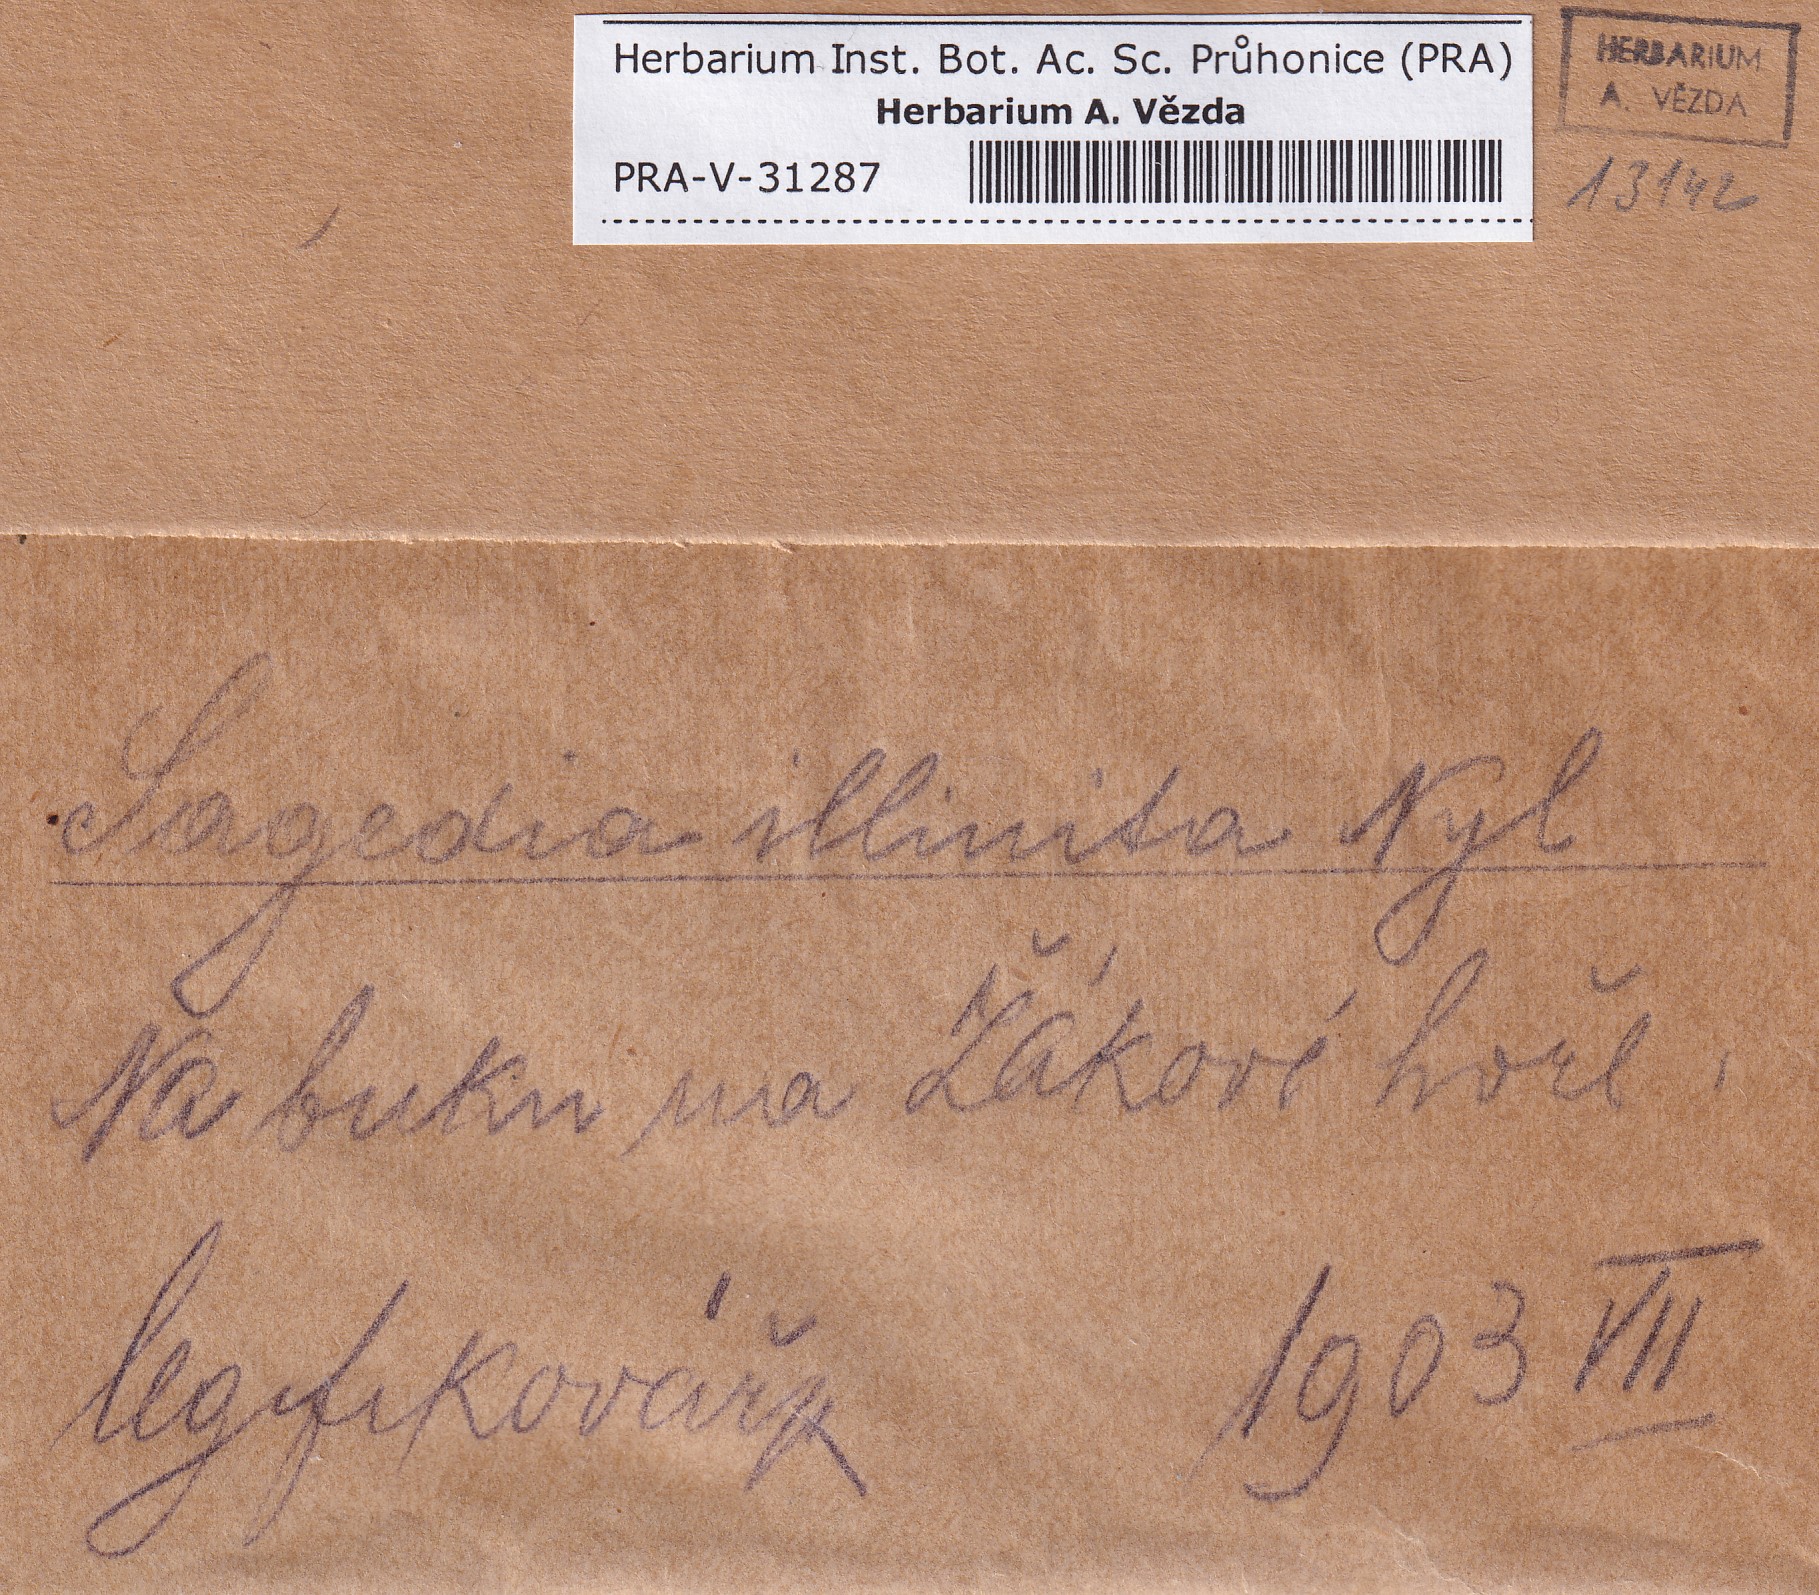 Herbarium Inst. Bot. Ac. Sc. Průhonice (PRA)
Herbarium A. Vězda
PRA-V-31287
HERBARIUM
A. VĚZDA
13142
Sagedia illinita Nyl
Na buku na Žákové hoře,
leg. f. Kovářx
1903 VII